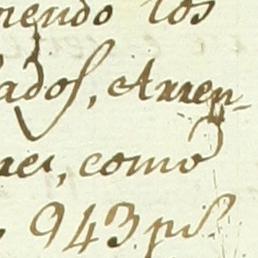 nendo los
ados, Arren-
res, como
943 ps.